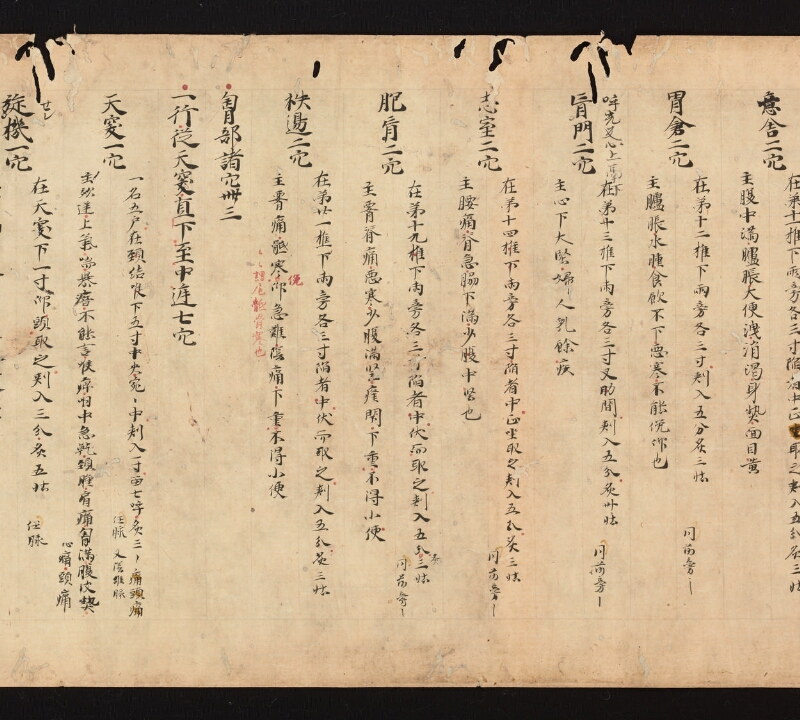 意舎二穴
在第十一椎下両旁各三寸陥者中正坐取之刾入五分灸三怗
主腹中満臚脹大便洩消渇身𤍠面目黄
胃倉二穴
在第十二椎下両旁各三寸刾入五分灸三怗 同前旁〻
主臚脹水腫食飲不下悪寒不能俛仰也
肓門二穴
在第十三椎下両旁各三寸叉肋間刾入五分灸卅怗 同前旁〻
主心下大堅婦人乳餘疾
志室二穴
在第十四椎下両旁各三寸陥者中正坐取之刾入五分灸三怗 同前旁〻
主腰痛脊急脇下満少腹中堅也
肥肓二穴
在第十九椎下両旁各三寸陥者中伏而取之刾入五分三怗 同前旁〻
主腎脊痛悪寒少腹満堅癃閇下重不得小便
秩邊二穴
在第廿一椎下両旁各三寸陥者中伏而取之刾入五分灸三怗
主腎痛骶寒俛仰急難陰痛下重不得小便
胷部諸穴卅三
一行従天窔直下至中遅七穴
天窔一穴
一名五戸在頚結喉下五寸中央宛〻中刾入一寸留七呼灸三〻 痛頭痛
任脉 又陰維脉
主欬逆上氣 暴瘖不能言喉痺咽中急 頚腫肩痛胷満腹皮𤍠
心痛頚痛
琁機一穴
在天窔下一寸仰頭取之刾入三分灸五怗 任脉